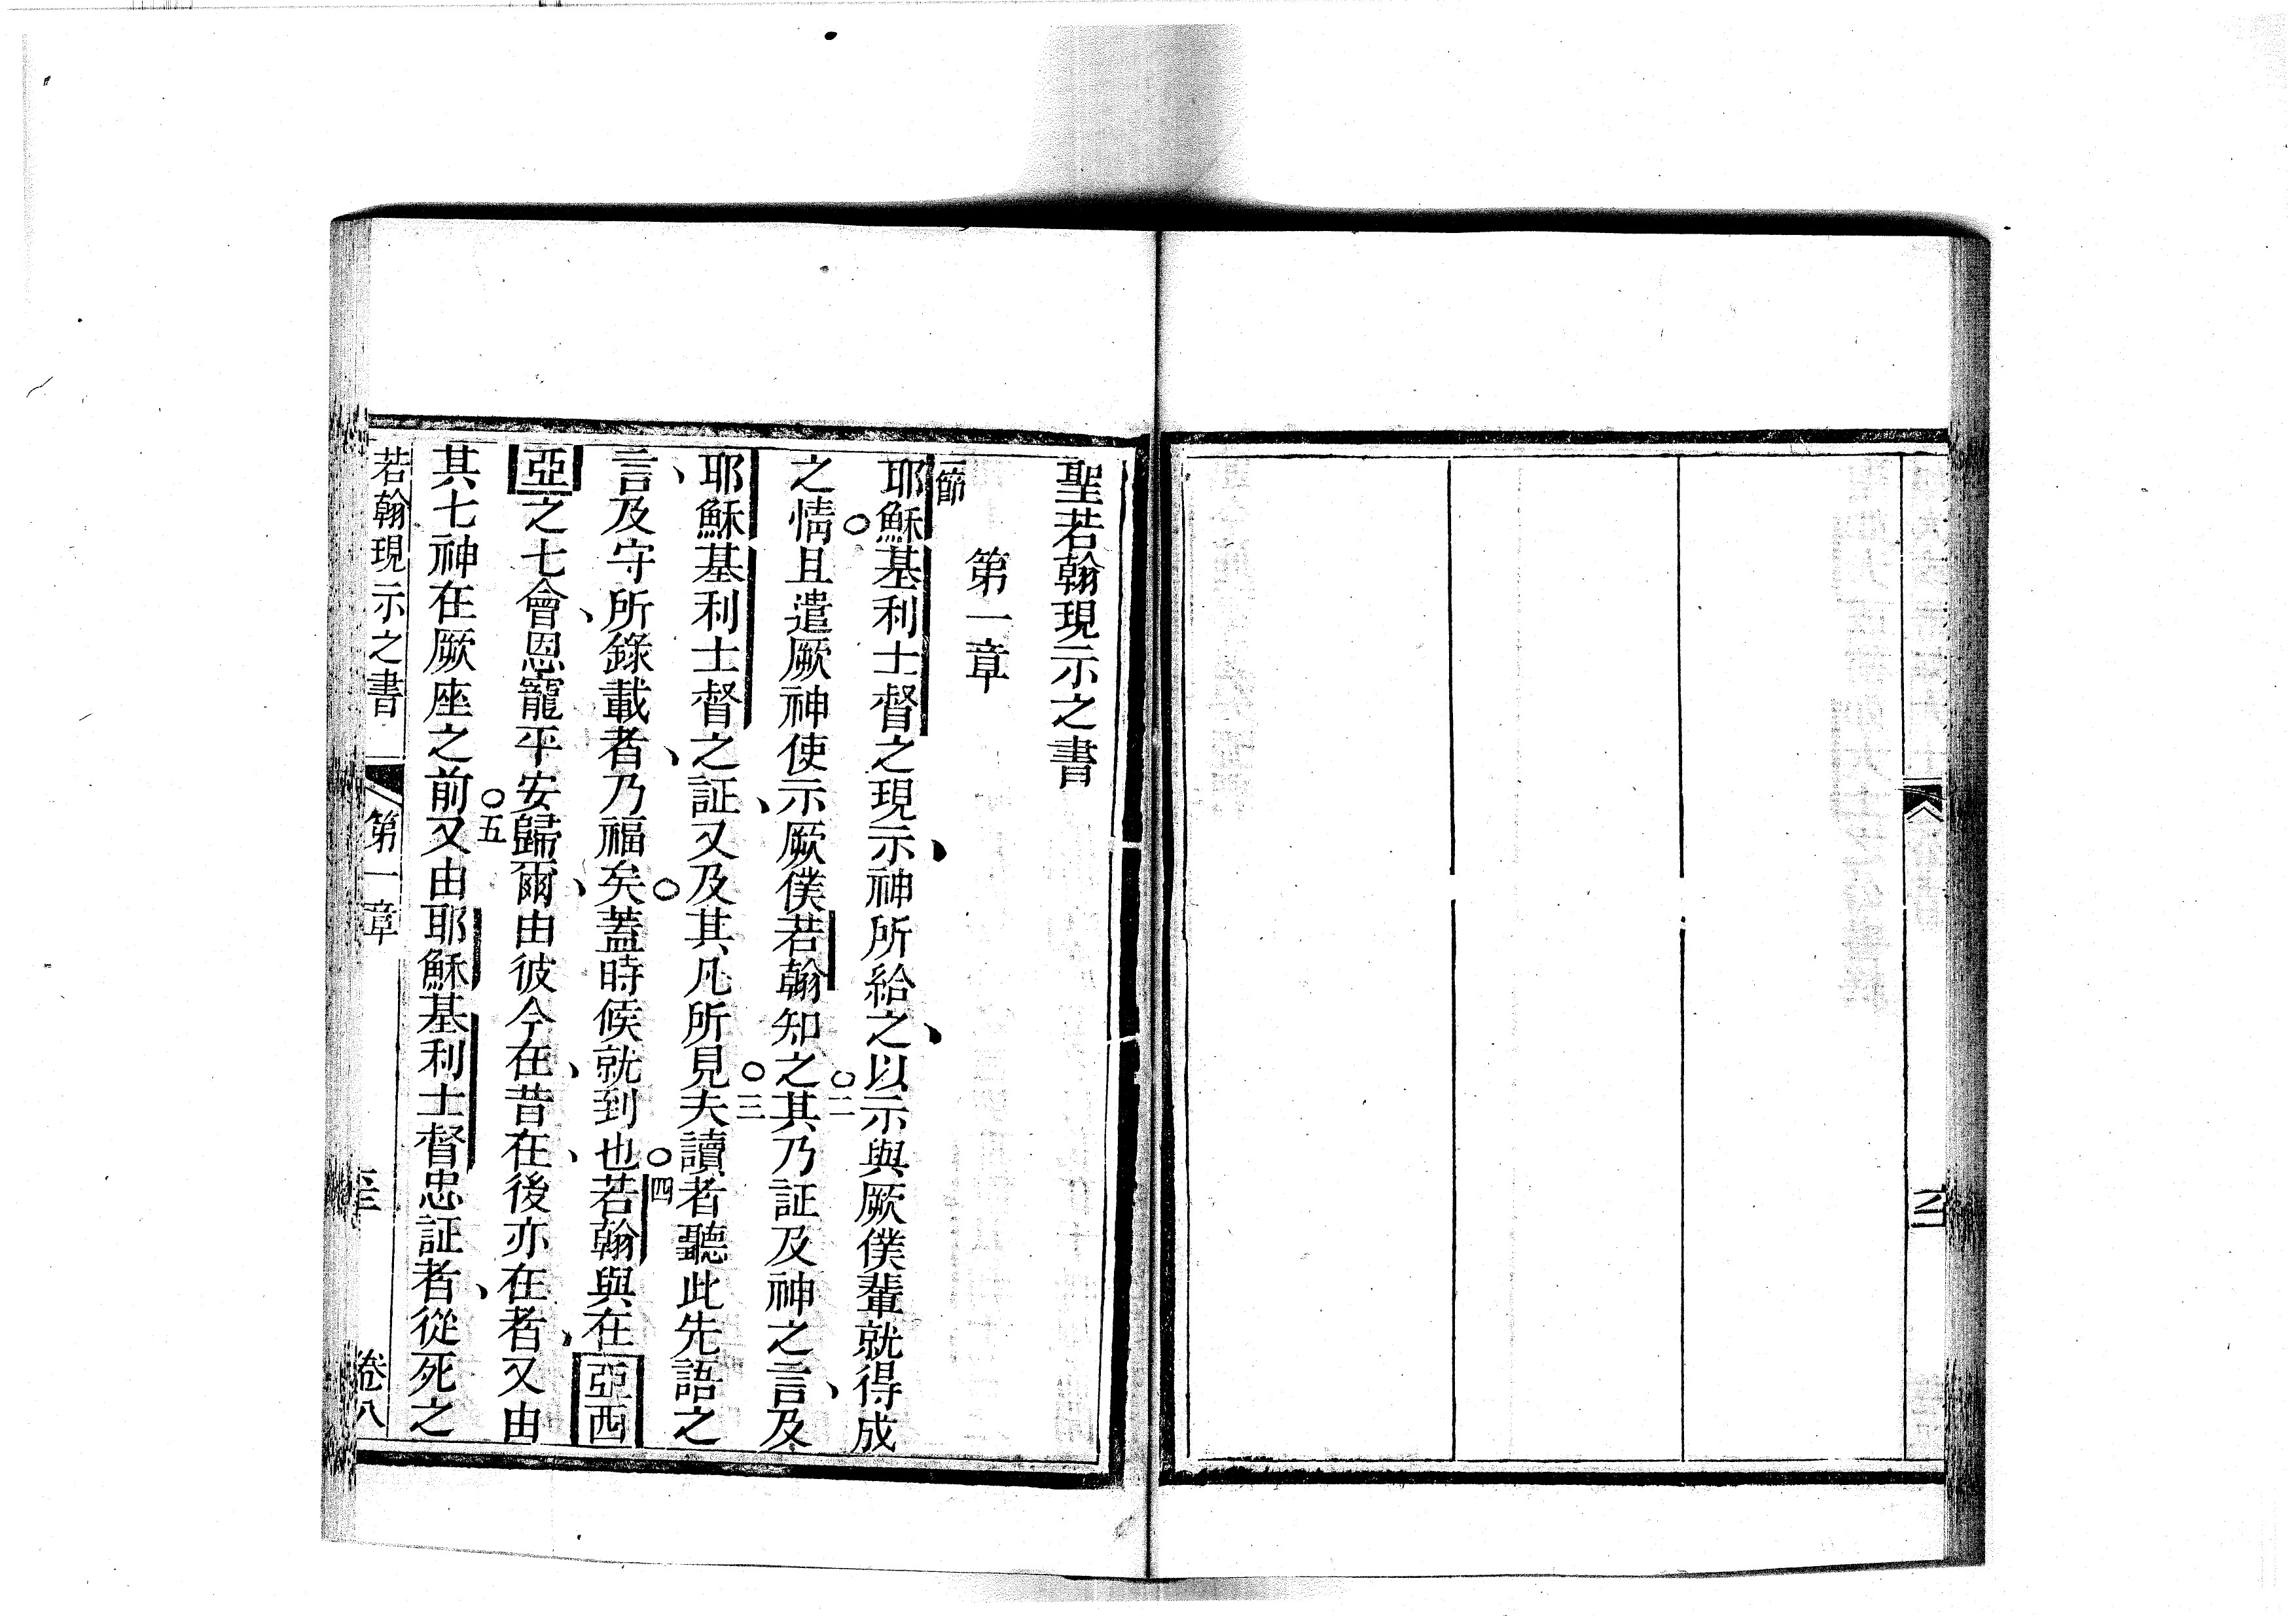 聖若翰現示之書
第一章
一節耶穌基利士督之現示、神所給之、以示與厥僕輩就得成
之情○且遣厥神使示厥僕若翰知之○二其乃証及神之言、及
耶穌基利士督之証、又及其凡所見○三夫讀者聽此先語之
言、及守所錄載者、乃福矣○蓋時候就到也○四若翰與在亞西
亞之七會、恩寵平安歸爾、由彼今在、昔在、後亦在者、又由
其七神在厥座之前○五又由耶穌基利士督忠証者、從死之
若翰現示之書 第一章 卷八